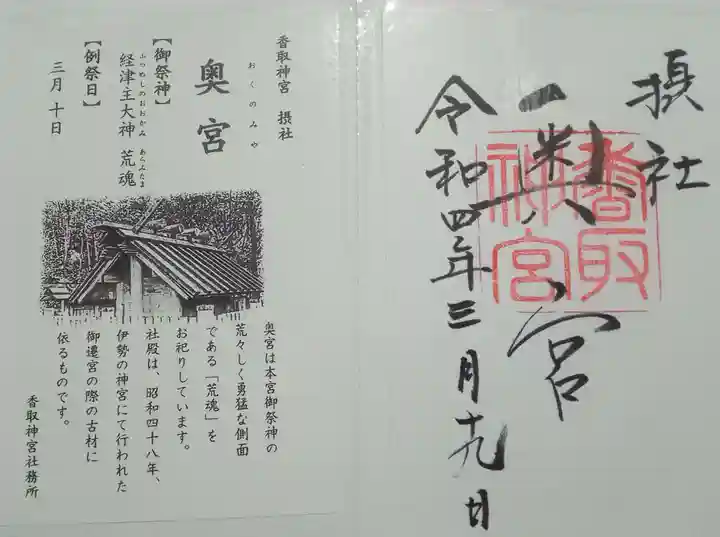 摂社
奥宮
令和四年三月十九日
香取
神宮
香取神宮 摂社
おくのみや
奥宮
【御祭神】
ふつぬしのおおかみ あらみたま
経津主大神 荒魂
【例祭日】
三月十日
奥宮は本宮御祭神の
荒々しく勇猛な側面
である「荒魂」を
お祀りしています。
社殿は、昭和四十八年、
伊勢の神宮にて行われた
御遷宮の際の古材に
依るものです。
香取神宮社務所